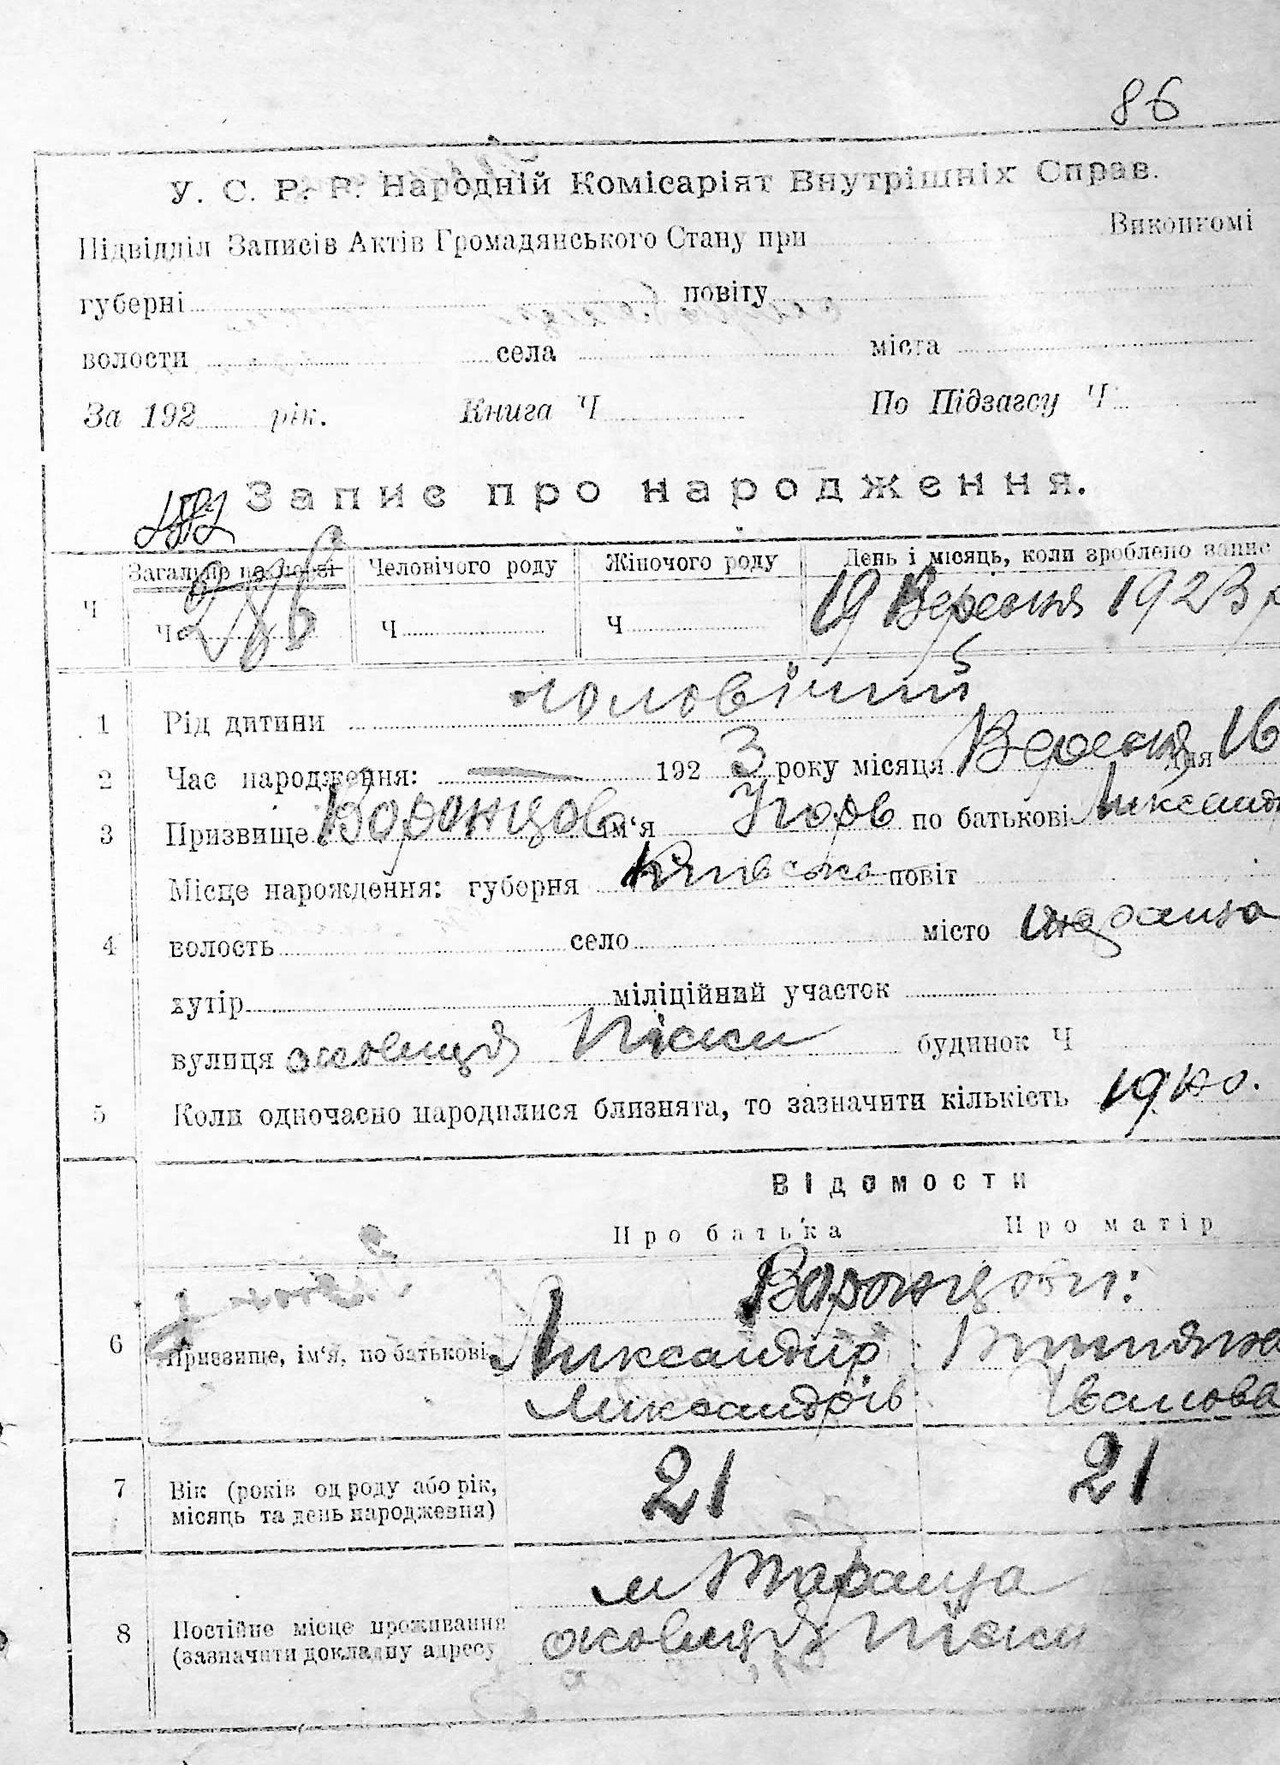 86
У. С. Р. Р. Народній Комісаріят Внутрішніх Справ.
Підвідділ Записів Актів Громадянського Стану при Виконкомі
губерні повіту
волости села міста
За 192 рік. Книга Ч По Підзагсу Ч
Запис про народження.
Загальне Человічого роду Жіночого роду День і місяць, коли зроблено запис
Ч Ч 286 Ч Ч 19 Вересня 1923 р
1 Рід дитини чоловічий
2 Час народження: 192 3 року місяця Вересня дня 16
3 Призвище Воронцов ім'я Ігорь по батькові Алксанд
Місце нарождення: губерня Київська повіт
4 волость село місто
хутір міліційний участок
вулиця околиця Піски будинок Ч
5 Коли одночасно народилися близнята, то зазначити кількість
Відомости
Про батька Про матір
Воронцови:
6 Призвище, ім'я, по батькові Алксандір
Алксандрів Іванова
7 Вік (років од роду або рік, 21 21
місяць та день народження)
м Тараща
8 Постійне місце проживання околиця Піски
(зазначити докладну адресу